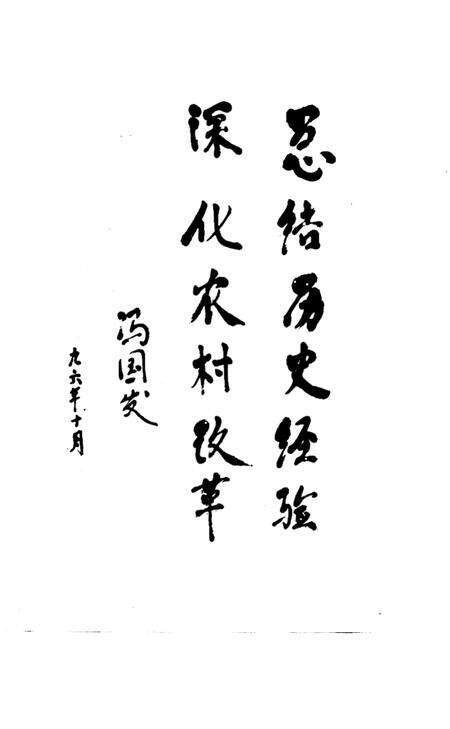 总结历史经验
深化农村改革
冯国发
九六年十月